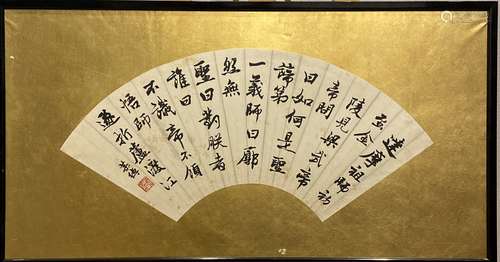 達摩祖師初
至金
陵見梁武帝
帝問
曰如何是聖
諦第
一義師曰廓
然無
聖曰對朕者
誰曰
不識帝不領
悟師
遂折蘆渡江